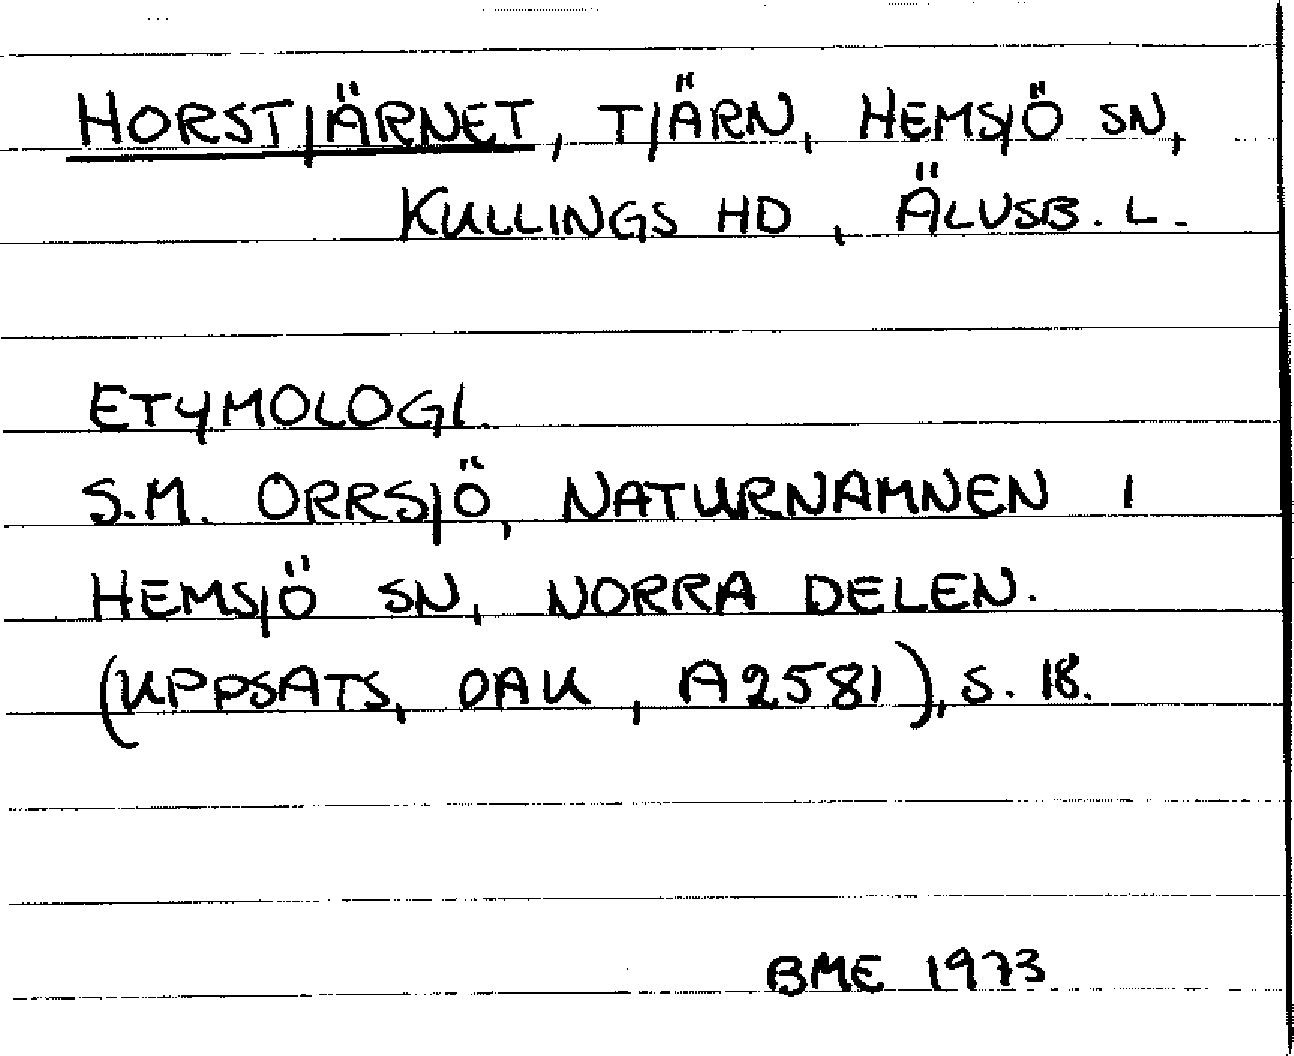 HORSTJÄRNET, TJÄRN, HEMSJÖ SN,
KULLINGS HD, ÄLVSB. L.
ETYMOLOGI.
S.M. ORRSJÖ, NATURNAMNEN I
HEMSJÖ SN, NORRA DELEN.
(UPPSATS, OAU, A2581), S. 18.
BME 1973